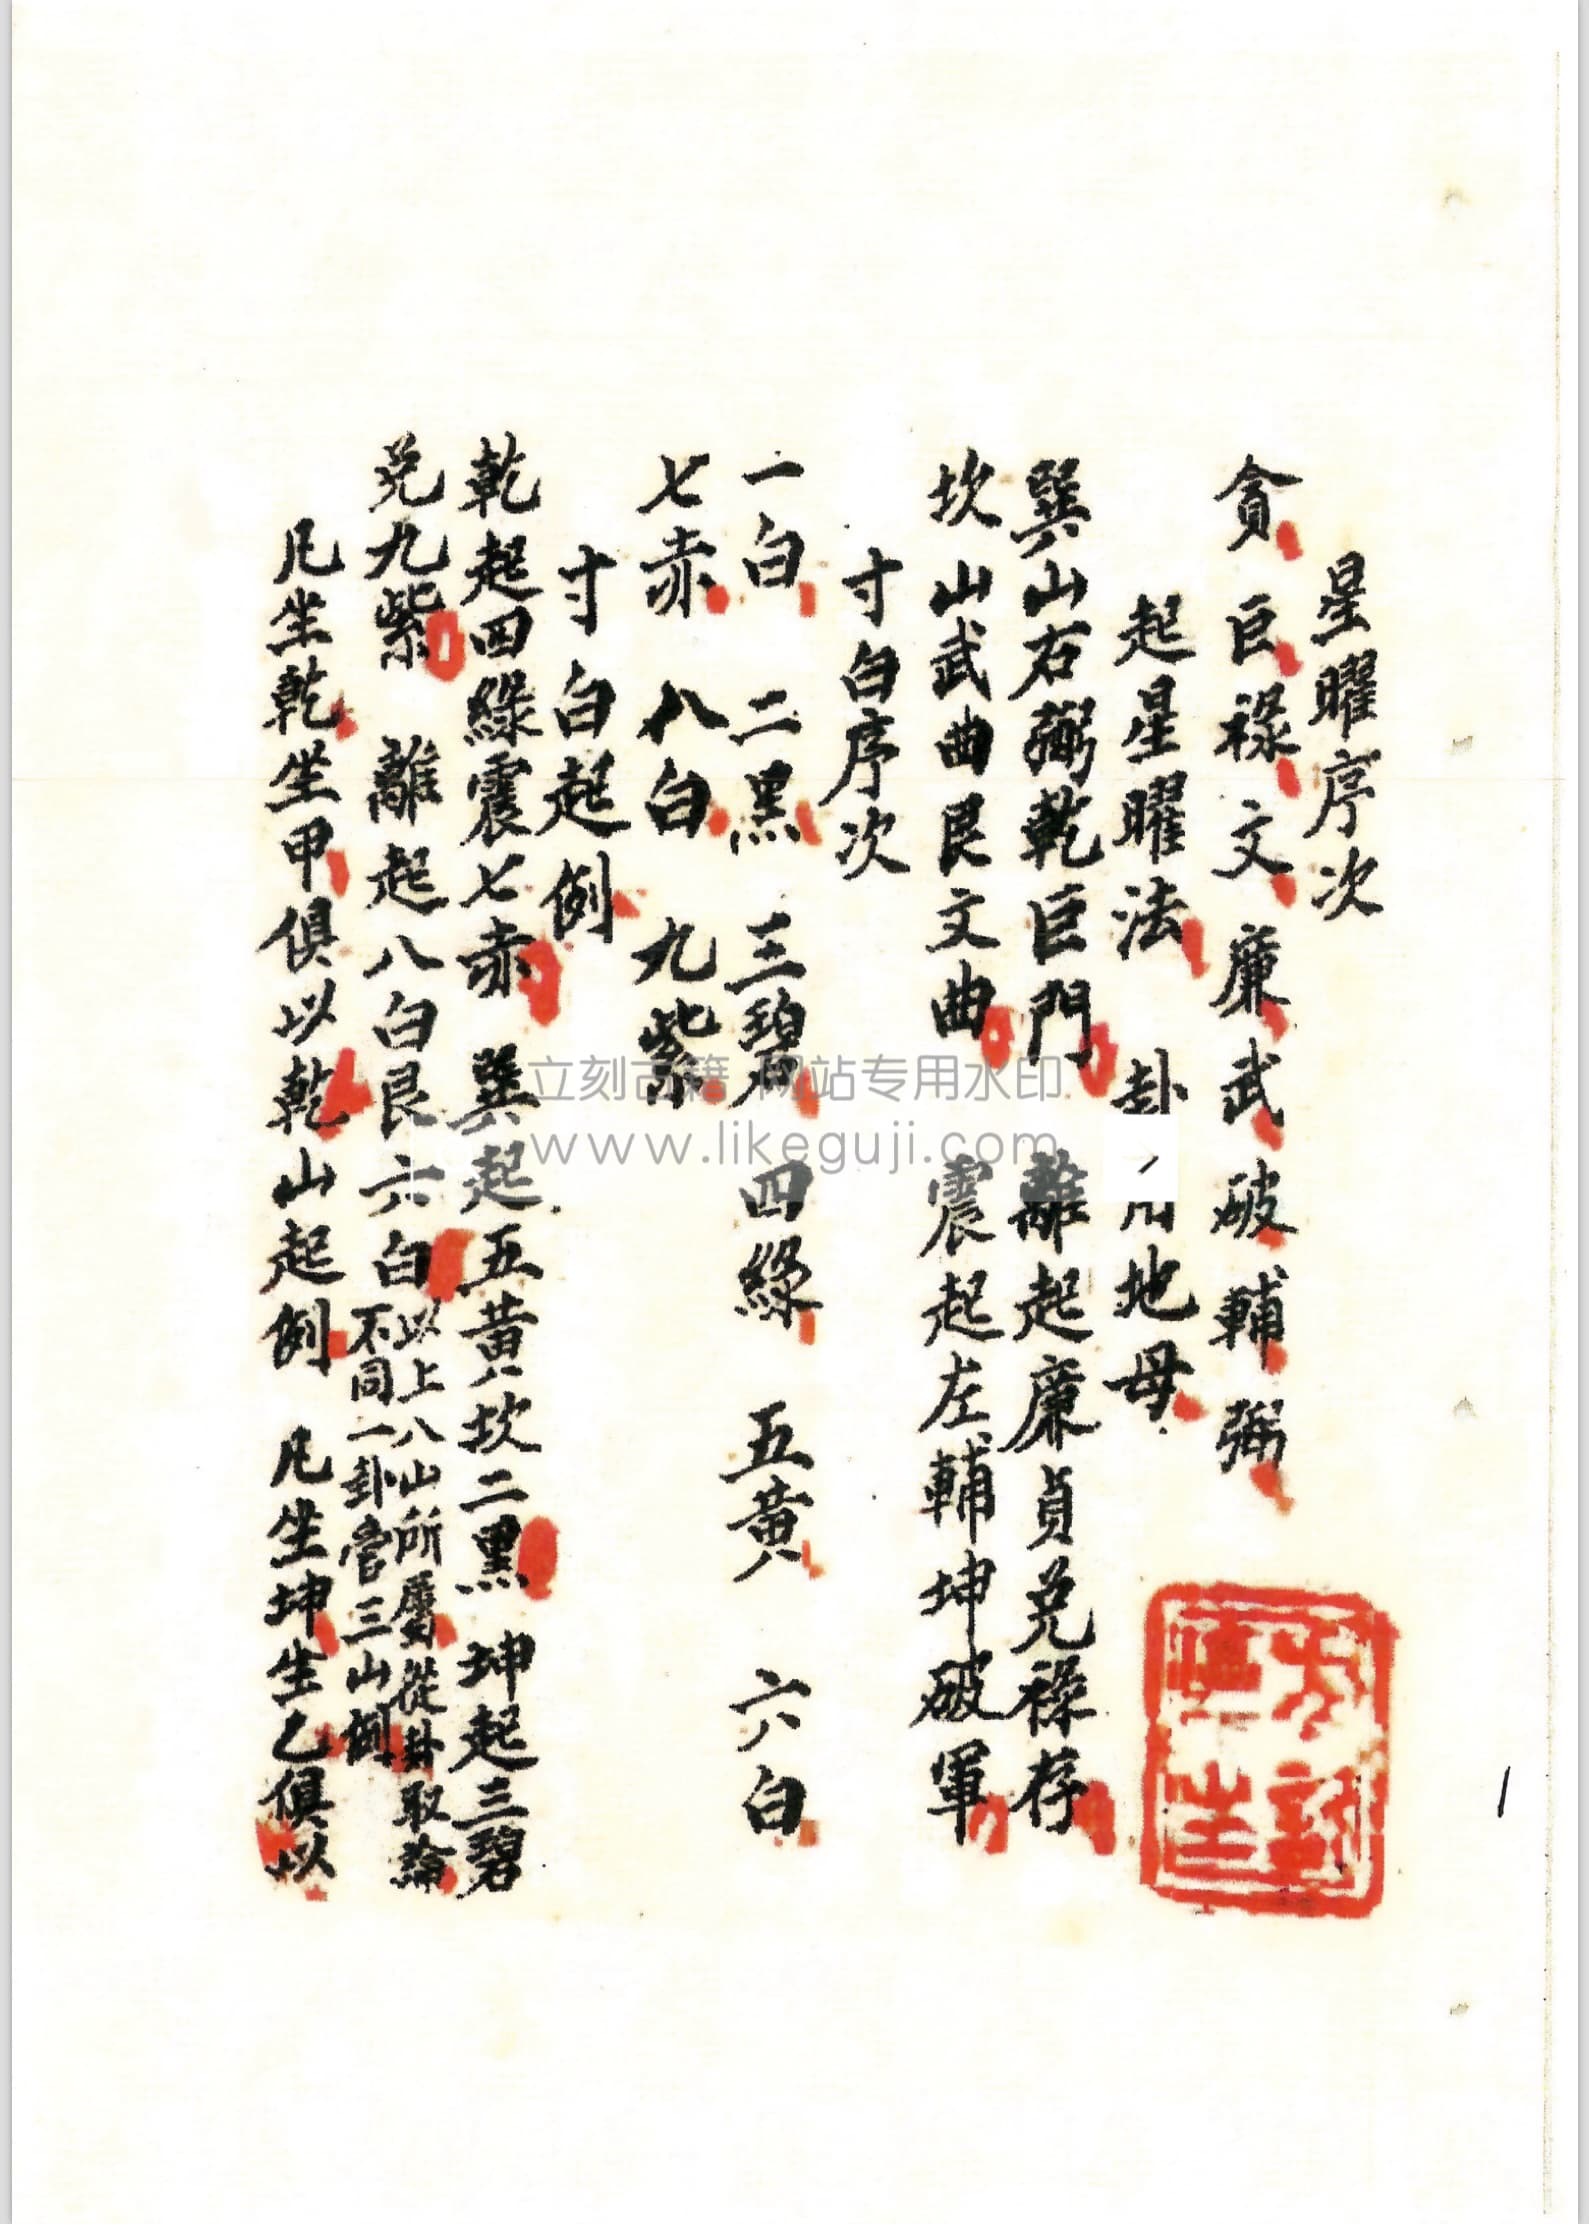 星曜序次
貪巨祿文廉武破輔弼
起星曜法 卦 用地母
巽山右弼乾巨門 離起廉貞兌祿存
坎山武曲艮文曲 震起左輔坤破軍
寸白序次
一白 二黑 三碧 四綠 五黃 六白
七赤 八白 九紫
寸白起例
乾起四綠震七赤 巽起五黃坎二黑 坤起三碧
兌九紫 離起八白艮六白
以上八山所屬從卦取論
不同一卦管三山例
凡坐乾坐甲俱以乾山起例 凡坐坤坐乙俱以
1
立刻古籍 网站专用水印
www.likeguji.com